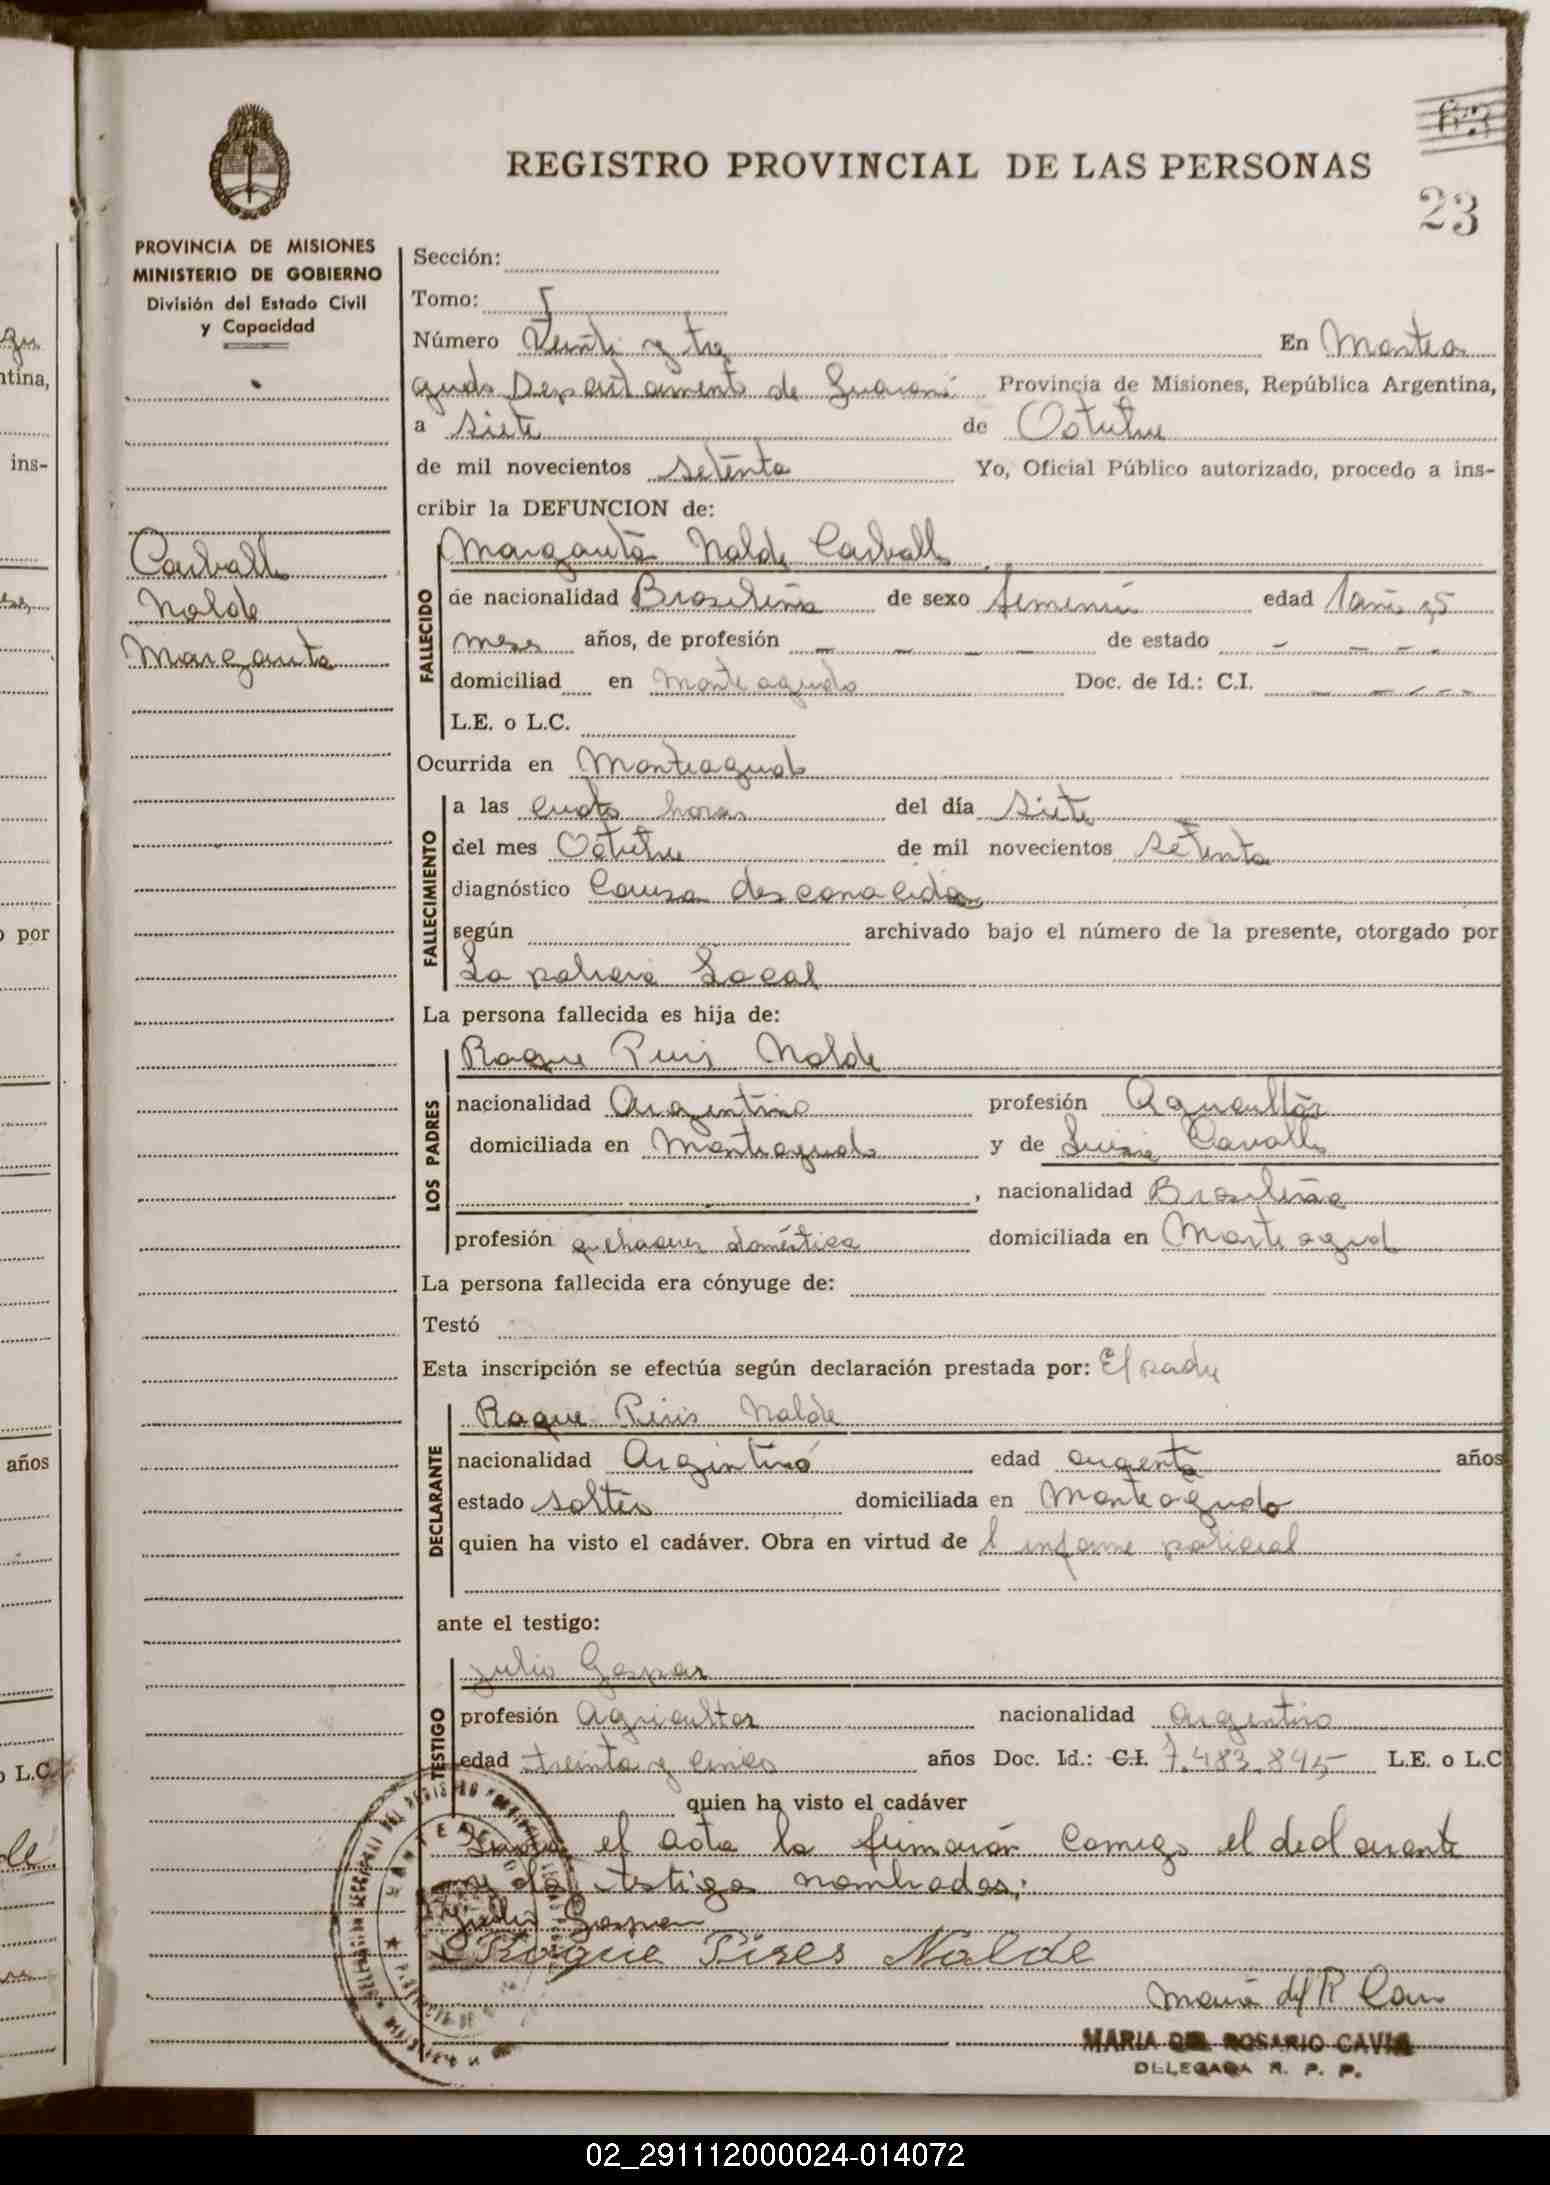 63
REGISTRO PROVINCIAL DE LAS PERSONAS
23
PROVINCIA DE MISIONES
MINISTERIO DE GOBIERNO
División del Estado Civil
y Capacidad
Carvallo
Nalde
Margarita
Sección:
Tomo: I
Número Veinti y tres En Montea
gudo Departamento de Guaraní Provincia de Misiones, República Argentina,
a siete de Octubre
de mil novecientos setenta Yo, Oficial Público autorizado, procedo a ins-
cribir la DEFUNCION de:
FALLECIDO
Margarita Nalde Carvallo
de nacionalidad Brasileña de sexo femenino edad 1 año y 5
meses años, de profesión – – – – de estado – – – –
domiciliad en Monteagudo Doc. de Id.: C.I. – – – – –
L.E. o L.C.
Ocurrida en Monteagudo
FALLECIMIENTO
a las cuatro horas del día siete
del mes Octubre de mil novecientos setenta
diagnóstico Causa desconocida
según archivado bajo el número de la presente, otorgado por
La policia Local
La persona fallecida es hija de:
LOS PADRES
Roque Piris Nalde
nacionalidad Argentino profesión Agricultor
domiciliada en Monteagudo y de Luisa Cavallo
, nacionalidad Brasileña
profesión quehaceres doméstica domiciliada en Monteagudo
La persona fallecida era cónyuge de:
Testó
Esta inscripción se efectúa según declaración prestada por: El padre
DECLARANTE
Roque Piris Nalde
nacionalidad Argintino edad años
estado soltero domiciliada en Monteagudo
quien ha visto el cadáver. Obra en virtud de l informe policial
ante el testigo:
TESTIGO
Julio Gaspar
profesión Agricultor nacionalidad Argentino
edad treinta y cinco años Doc. Id.: C.I. 7.483.895 L.E. o L.C
quien ha visto el cadáver
el acta la firmarón comigo el declarante
testigo nombrados;
Julio Gaspar
Roque Pires Nalde
Maria del R Cavi
MARIA DEL ROSARIO CAVIA
DELEGADA R. P. P.
ins-
por
años
L.C.
02_291112000024-014072